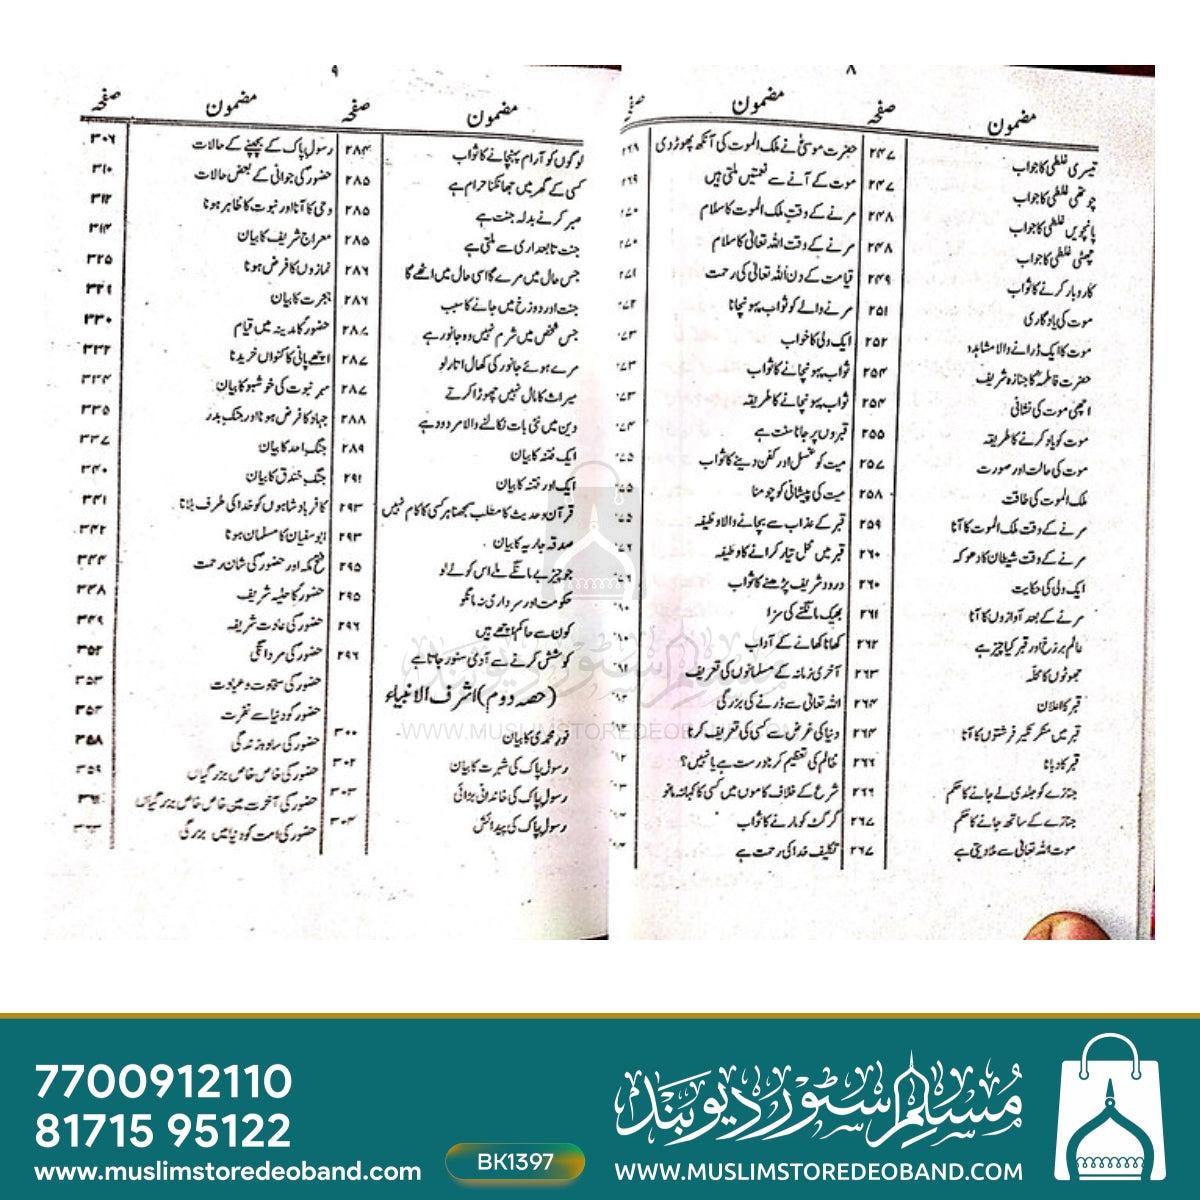 ۸
مضمون
صفحہ
مضمون
تیسری غلطی کا جواب ۲۴۷
چوتھی غلطی کا جواب ۲۴۷
پانچویں غلطی کا جواب ۲۴۸
چھٹی غلطی کا جواب ۲۴۸
کاروبار کرنے کا ثواب ۲۴۹
موت کی یادگاری ۲۵۱
موت کا ایک ڈرانے والا مشاہدہ ۲۵۲
حضرت فاطمہؓ کا جنازہ شریف ۲۵۴
اچھی موت کی نشانی ۲۵۴
موت کو یاد کرنے کا طریقہ ۲۵۵
موت کی حالت اور صورت ۲۵۷
ملک الموت کی طاقت ۲۵۸
مرنے کے وقت ملک الموت کا آنا ۲۵۹
مرنے کے وقت شیطان کا دھوکہ ۲۶۰
ایک ولی کی حکایت ۲۶۰
مرنے کے بعد آوازوں کا آنا ۲۶۱
عالم برزخ اور قبر کیا چیز ہے ۲۶۲
جھوٹوں کا محلہ ۲۶۳
قبر کا اعلان ۲۶۴
قبر میں منکر نکیر فرشتوں کا آنا ۲۶۴
قبر کا دبانا ۲۶۶
جنازے کو جلدی لے جانے کا حکم ۲۶۶
جنازے کے ساتھ جانے کا حکم ۲۶۷
موت اللہ تعالیٰ سے ملادیتی ہے ۲۶۷
حضرت موسیٰؑ نے ملک الموت کی آنکھ پھوڑ دی
موت کے آنے سے نعمتیں ملتی ہیں ۲۶۹
مرنے کے وقت ملک الموت کا سلام
مرنے کے وقت اللہ تعالیٰ کا سلام
قیامت کے دن اللہ تعالیٰ کی رحمت
مرنے والے کو ثواب پہونچانا
ایک ولی کا خواب
ثواب پہونچانے کا ثواب
ثواب پہونچانے کا طریقہ
قبروں پر جانا سنت ہے
میت کو غسل اور کفن دینے کا ثواب
میت کی پیشانی کو چومنا
قبر کے عذاب سے بچانے والا وظیفہ
قبر میں محل تیار کرانے کا وظیفہ
درود شریف پڑھنے کا ثواب
بھیک مانگنے کی سزا
کھانا کھانے کے آداب
آخری زمانہ کے مسلمانوں کی تعریف
اللہ تعالیٰ سے ڈرنے کی بزرگی
دنیا کی غرض سے کسی کی تعریف کرنا
ظالم کی تعظیم کرنا درست ہے یا نہیں؟
شرع کے خلاف کاموں میں کسی کا کہا نہ مانو
گرگٹ کو مارنے کا ثواب
تکلیف خدا کی رحمت ہے
۹
مضمون
صفحہ
مضمون
صفحہ
لوگوں کو آرام پہنچانے کا ثواب ۲۸۴
کسی کے گھر میں جھانکنا حرام ہے ۲۸۵
صبر کرنے بدلہ جنت ہے ۲۸۵
جنت تابعداری سے ملتی ہے ۲۸۵
جس حال میں مرے گا اسی حال میں اٹھے گا ۲۸۶
جنت اور دوزخ میں جانے کا سبب ۲۸۶
جس شخص میں شرم نہیں وہ جانور ہے ۲۸۷
مرے ہوئے جانور کی کھال اتار لو ۲۸۷
میراث کا مال نہیں چھوڑا کرتے ۲۸۷
دین میں نئی بات نکالنے والا مردود ہے ۲۸۸
ایک فتنہ کا بیان ۲۸۹
ایک اور فتنہ کا بیان ۲۹۱
قرآن و حدیث کا مطلب سمجھنا ہر کسی کا کام نہیں ۲۹۳
صدقہ جاریہ کا بیان ۲۹۳
جو چیز بے مانگے ملے اس کو لے لو ۲۹۵
حکومت اور سرداری نہ مانگو ۲۹۵
کون سے حاکم اچھے ہیں ۲۹۶
کوشش کرنے سے آدمی سنور جاتا ہے ۲۹۶
(حصہ دوم) اشرف الانبیاء
نور محمدی کا بیان ۳۰۰
رسول پاک کی شہرت کا بیان ۳۰۲
رسول پاک کی خاندانی بڑائی ۳۰۳
رسول پاک کی پیدائش ۳۰۴
رسول پاک کے بچپنے کے حالات ۳۰۶
حضور کی جوانی کے بعض حالات ۳۱۰
وحی کا آنا اور نبوت کا ظاہر ہونا ۳۱۲
معراج شریف کا بیان ۳۱۴
نمازوں کا فرض ہونا ۳۲۵
ہجرت کا بیان ۳۲۹
حضور کا مدینہ میں قیام ۳۳۰
اچھے پانی کا کنواں خریدنا ۳۳۲
مہر نبوت کی خوشبو کا بیان ۳۳۴
جہاد کا فرض ہونا اور جنگ بدر ۳۳۵
جنگ احد کا بیان ۳۳۷
جنگ خندق کا بیان ۳۴۰
کافر بادشاہوں کو خدا کی طرف بلانا ۳۴۱
ابوسفیان کا مسلمان ہونا ۳۴۲
فتح مکہ اور حضور کی شان رحمت ۳۴۴
حضور کا حلیہ شریف ۳۴۸
حضور کی عادت شریفہ ۳۴۹
حضور کی مردانگی ۳۵۲
حضور کی سخاوت و عبادت ۳۵۳
حضور کو دنیا سے نفرت
حضور کی سادہ زندگی ۳۵۸
حضور کی خاص خاص بزرگیاں ۳۵۹
حضور کی آخرت میں خاص خاص بزرگیاں
حضور کی امت کو دنیا میں بزرگی
مسلم سٹور دیوبند
WWW.MUSLIMSTOREDEOBAND.COM
7700912110
81715 95122
www.muslimstoredeoband.com
BK1397
مسلم سٹور دیوبند
WWW.MUSLIMSTOREDEOBAND.COM